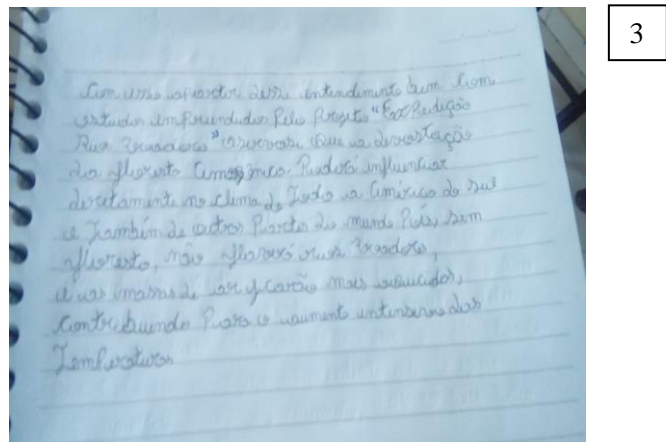 Com isso apartir desse entendimento bem com
estudos empreendudos Pelo Projeto "ExPedição
Rios Voadores" observasi que a devastação
da floresta Amazônica Poderá influenciar
diretamente no clima de Toda a América do sul
e Também de outros Partes do mundo Pois, sem
floresta, não haverá rios Voadores,
e as massas de ar ficarão mais aquecidos,
Contribuindo Para o aumento intenso das
Temperaturas
3